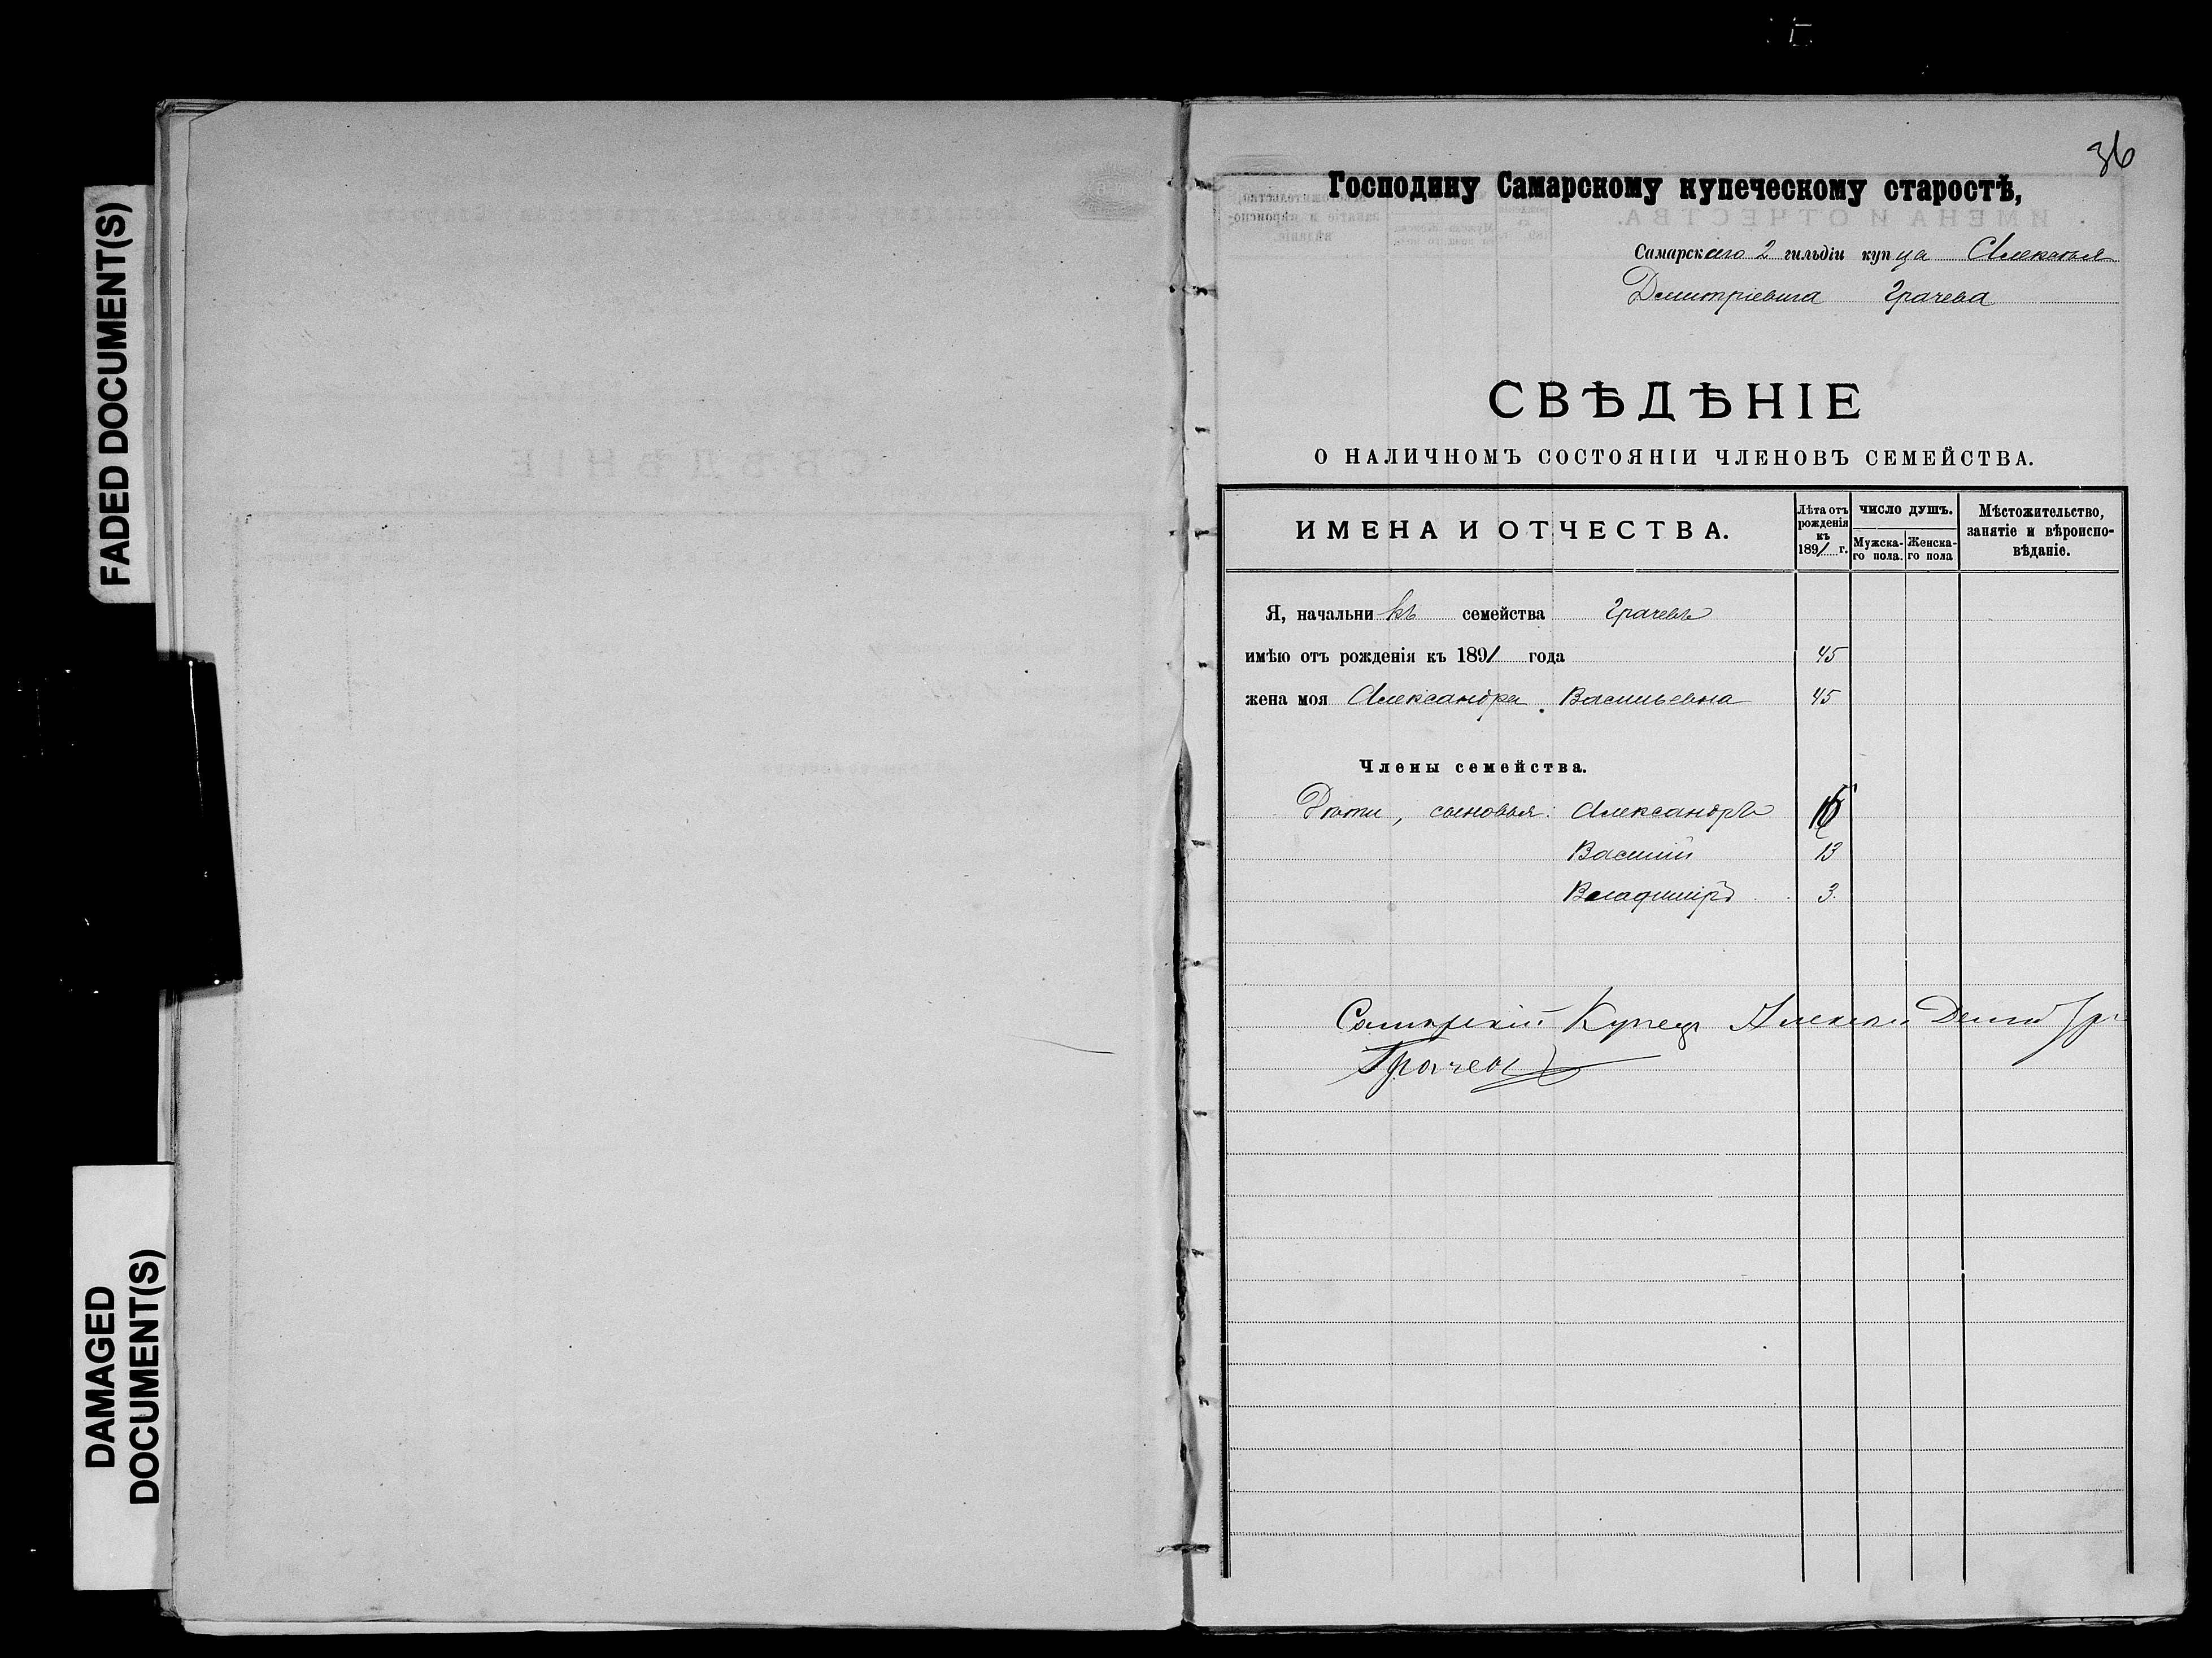 FADED DOCUMENT(S)
DAMAGED
DOCUMENT(S)
36
Господину Самарскому купеческому старостѣ,
Самарскаго 2 гильдіи купца Алексѣя
Дмитріевича Грачева
СВѢДѢНІЕ
О НАЛИЧНОМЪ СОСТОЯНІИ ЧЛЕНОВЪ СЕМЕЙСТВА.
ИМЕНА И ОТЧЕСТВА.
Лѣта отъ рожденія къ 1891 г.
ЧИСЛО ДУШЪ.
Мужска-го пола.
Женска-го пола
Мѣстожительство, занятіе и вѣроиспо-вѣданіе.
Я, начальникъ семейства Грачевъ
имѣю отъ рожденія къ 1891 года 45
жена моя Александра Васильевна 45
Члены семейства.
Дѣти, сыновья: Александръ
Василій 13
Владиміръ 3.
Самарскій Купецъ Алексѣй
Грачевъ